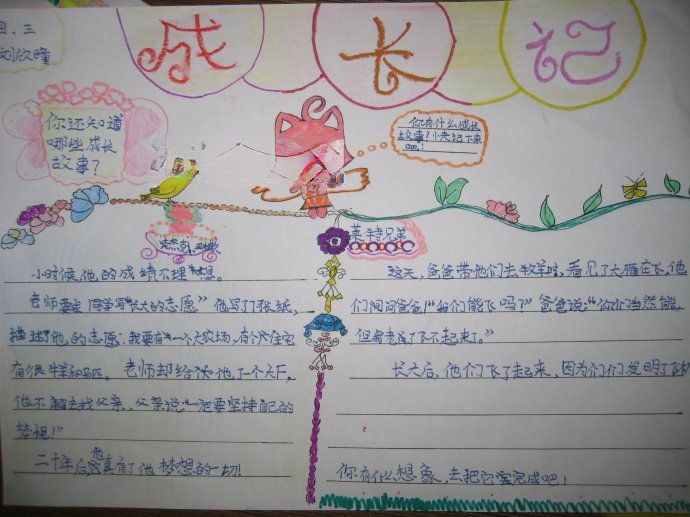 成长记
四、三
刘欣瞳
你还知道
哪些成长
故事？
你有什么成长
故事？小老师记下来
莱特兄弟
小时候，他的成绩不理想。
老师要求同学写“长大的志愿”他写了7张纸，
描述他的志愿：我要有一个大农场，有个大住宅
有很牛羊和马匹。老师却给
他不解去找父亲，父亲说：“一定要坚持自己的
梦想！”
二十年后他真有了他梦想的一切！
这天，爸爸带他们去牧羊时，看见了大雁在飞，他
们问爸爸！“我们能飞吗？”爸爸说：“你们当然能，
但我老了飞不起来了。”
长大后，他们飞了起来，因为们们发明了飞机
你有什么想象，去把它完成吧！